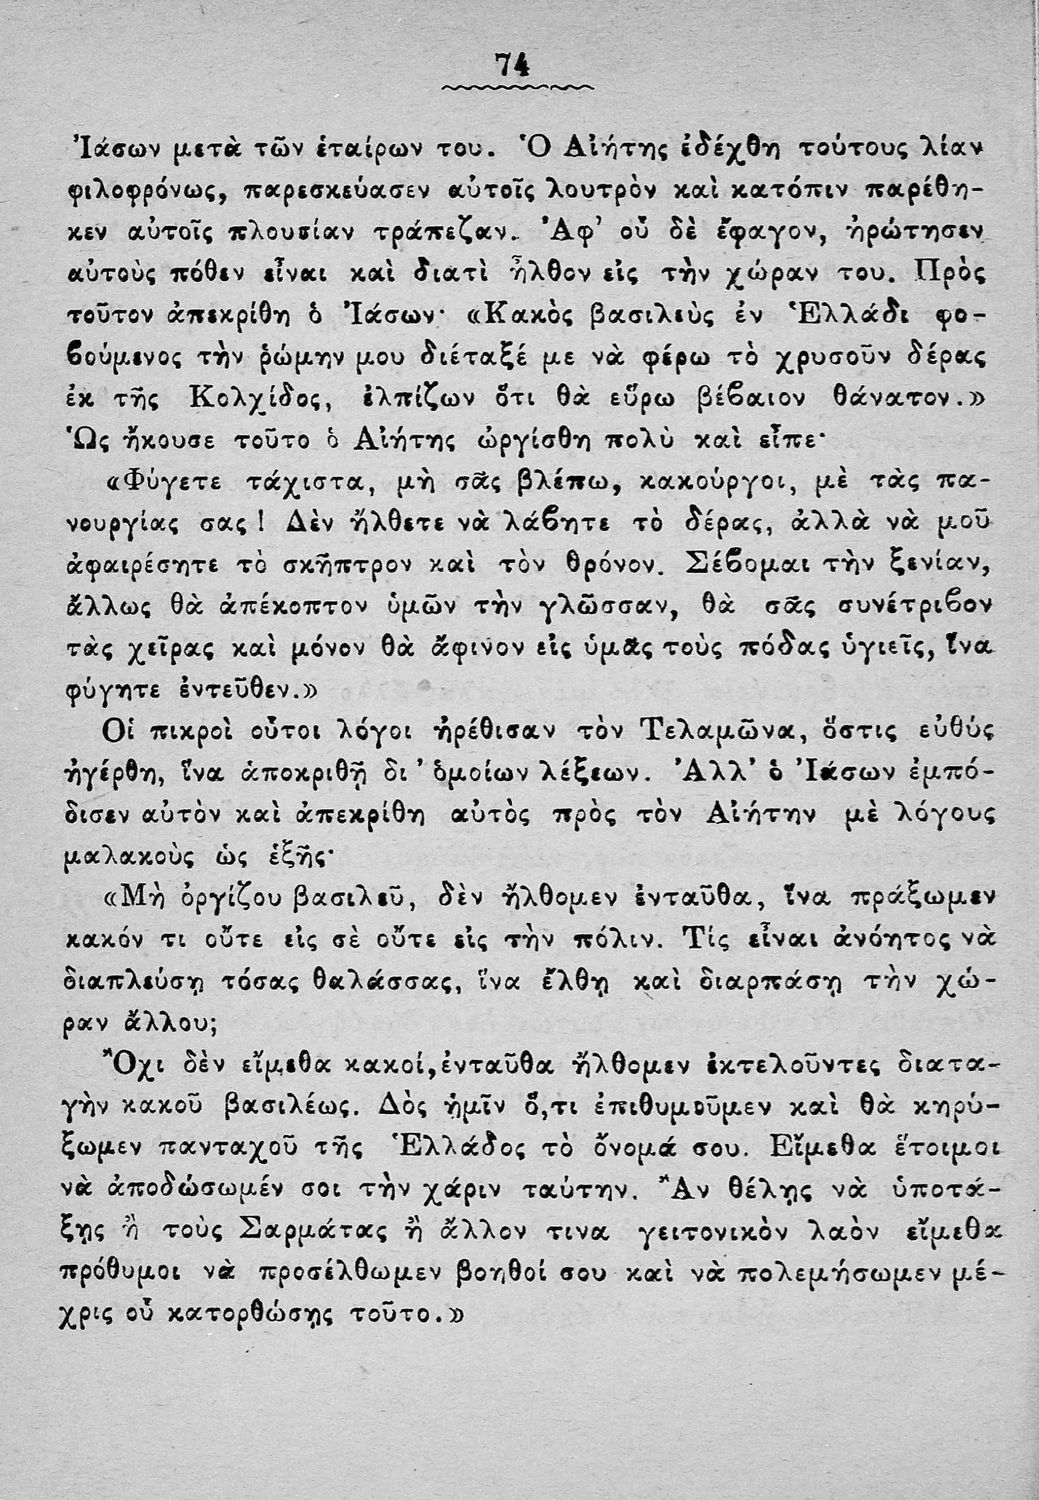 74
Ἰάσων μετὰ τῶν ἑταίρων του. Ὁ Αἰήτης ἐδέχθη τούτους λίαν
φιλοφρόνως, παρεσκεύασεν αὐτοῖς λουτρὸν καὶ κατόπιν παρέθη-
κεν αὐτοῖς πλουσίαν τράπεζαν. Ἀφ’ οὗ δὲ ἔφαγον, ἠρώτησεν
αὐτοὺς πόθεν εἶναι καὶ διατὶ ἦλθον εἰς τὴν χώραν του. Πρὸς
τοῦτον ἀπεκρίθη ὁ Ἰάσων· «Κακὸς βασιλεὺς ἐν Ἑλλάδι φο-
βούμενος τὴν ῥώμην μου διέταξέ με νὰ φέρω τὸ χρυσοῦν δέρας
ἐκ τῆς Κολχίδος, ἐλπίζων ὅτι θὰ εὕρω βέβαιον θάνατον.»
Ὡς ἤκουσε τοῦτο ὁ Αἰήτης ὠργίσθη πολὺ καὶ εἶπε·
«Φύγετε τάχιστα, μὴ σᾶς βλέπω, κακούργοι, μὲ τὰς πα-
νουργίας σας! Δὲν ἤλθετε νὰ λάβητε τὸ δέρας, ἀλλὰ νὰ μοῦ
ἀφαιρέσητε τὸ σκῆπτρον καὶ τὸν θρόνον. Σέβομαι τὴν ξενίαν,
ἄλλως θὰ ἀπέκοπτον ὑμῶν τὴν γλῶσσαν, θὰ σᾶς συνέτριβον
τὰς χεῖρας καὶ μόνον θὰ ἄφινον εἰς ὑμᾶς τοὺς πόδας ὑγιεῖς, ἵνα
φύγητε ἐντεῦθεν.»
Οἱ πικροὶ οὗτοι λόγοι ἠρέθισαν τὸν Τελαμῶνα, ὅστις εὐθύς
ἠγέρθη, ἵνα ἀποκριθῇ δι’ ὁμοίων λέξεων. Ἀλλ’ ὁ Ἰάσων ἐμπό-
δισεν αὐτὸν καὶ ἀπεκρίθη αὐτὸς πρὸς τὸν Αἰήτην μὲ λόγους
μαλακοὺς ὡς ἑξῆς·
«Μὴ ὀργίζου βασιλεῦ, δὲν ἤλθομεν ἐνταῦθα, ἵνα πράξωμεν
κακόν τι οὔτε εἰς σὲ οὔτε εἰς τὴν πόλιν. Τίς εἶναι ἀνόητος νὰ
διαπλεύσῃ τόσας θαλάσσας, ἵνα ἔλθῃ καὶ διαρπάσῃ τὴν χώ-
ραν ἄλλου;
Ὄχι δὲν εἴμεθα κακοί, ἐνταῦθα ἤλθομεν ἐκτελοῦντες διατα-
γὴν κακοῦ βασιλέως. Δὸς ἡμῖν ὅ,τι ἐπιθυμοῦμεν καὶ θὰ κηρύ-
ξωμεν πανταχοῦ τῆς Ἑλλάδος τὸ ὄνομά σου. Εἴμεθα ἕτοιμοι
νὰ ἀποδώσωμέν σοι τὴν χάριν ταύτην. Ἂν θέλῃς νὰ ὑποτά-
ξῃς ἢ τοὺς Σαρμάτας ἢ ἄλλον τινα γειτονικὸν λαὸν εἴμεθα
πρόθυμοι νὰ προσέλθωμεν βοηθοί σου καὶ νὰ πολεμήσωμεν μέ-
χρις οὗ κατορθώσῃς τοῦτο.»